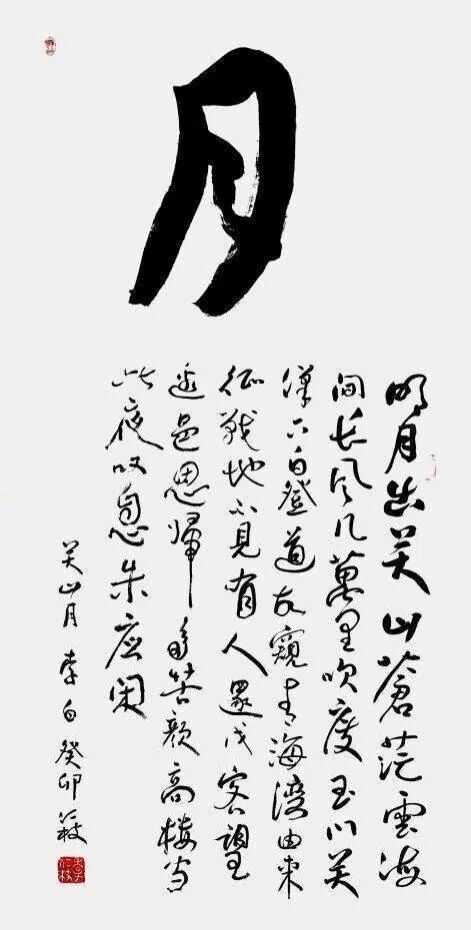 月
明月出关山蒼茫雲海
间长风几萬里吹度玉门关
漢下白登道胡窺青海湾由来
征戰地不見有人還戍客望
边邑思歸多苦颜高楼当
此夜叹息未应闲
关山月 李白 癸卯